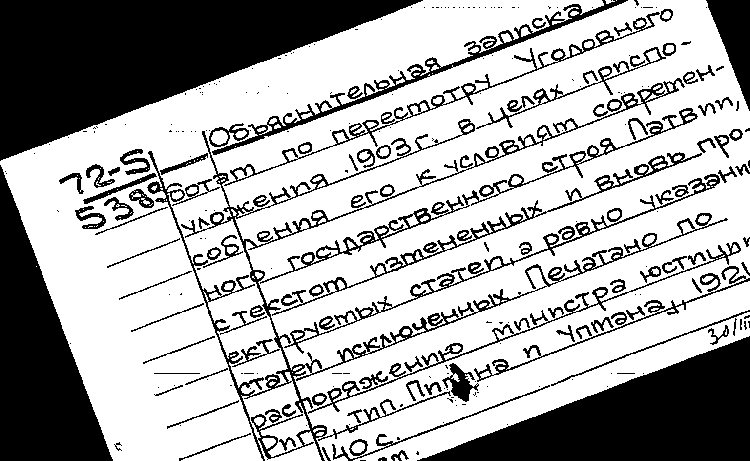 Объяснительная записка
72-5
5389
ботам по пересмотру Уголовного
уложения 1903 г. в целях приспо-
собления его к условиям современ-
ного государственного строя Латвии,
с текстом измененных и вновь про-
ектируемых статей, а равно указани
статей исключенных. Печатано по
распоряжению министра юстиции
Рига, "тип. Пипмана и Упмана", 1921
140 с.